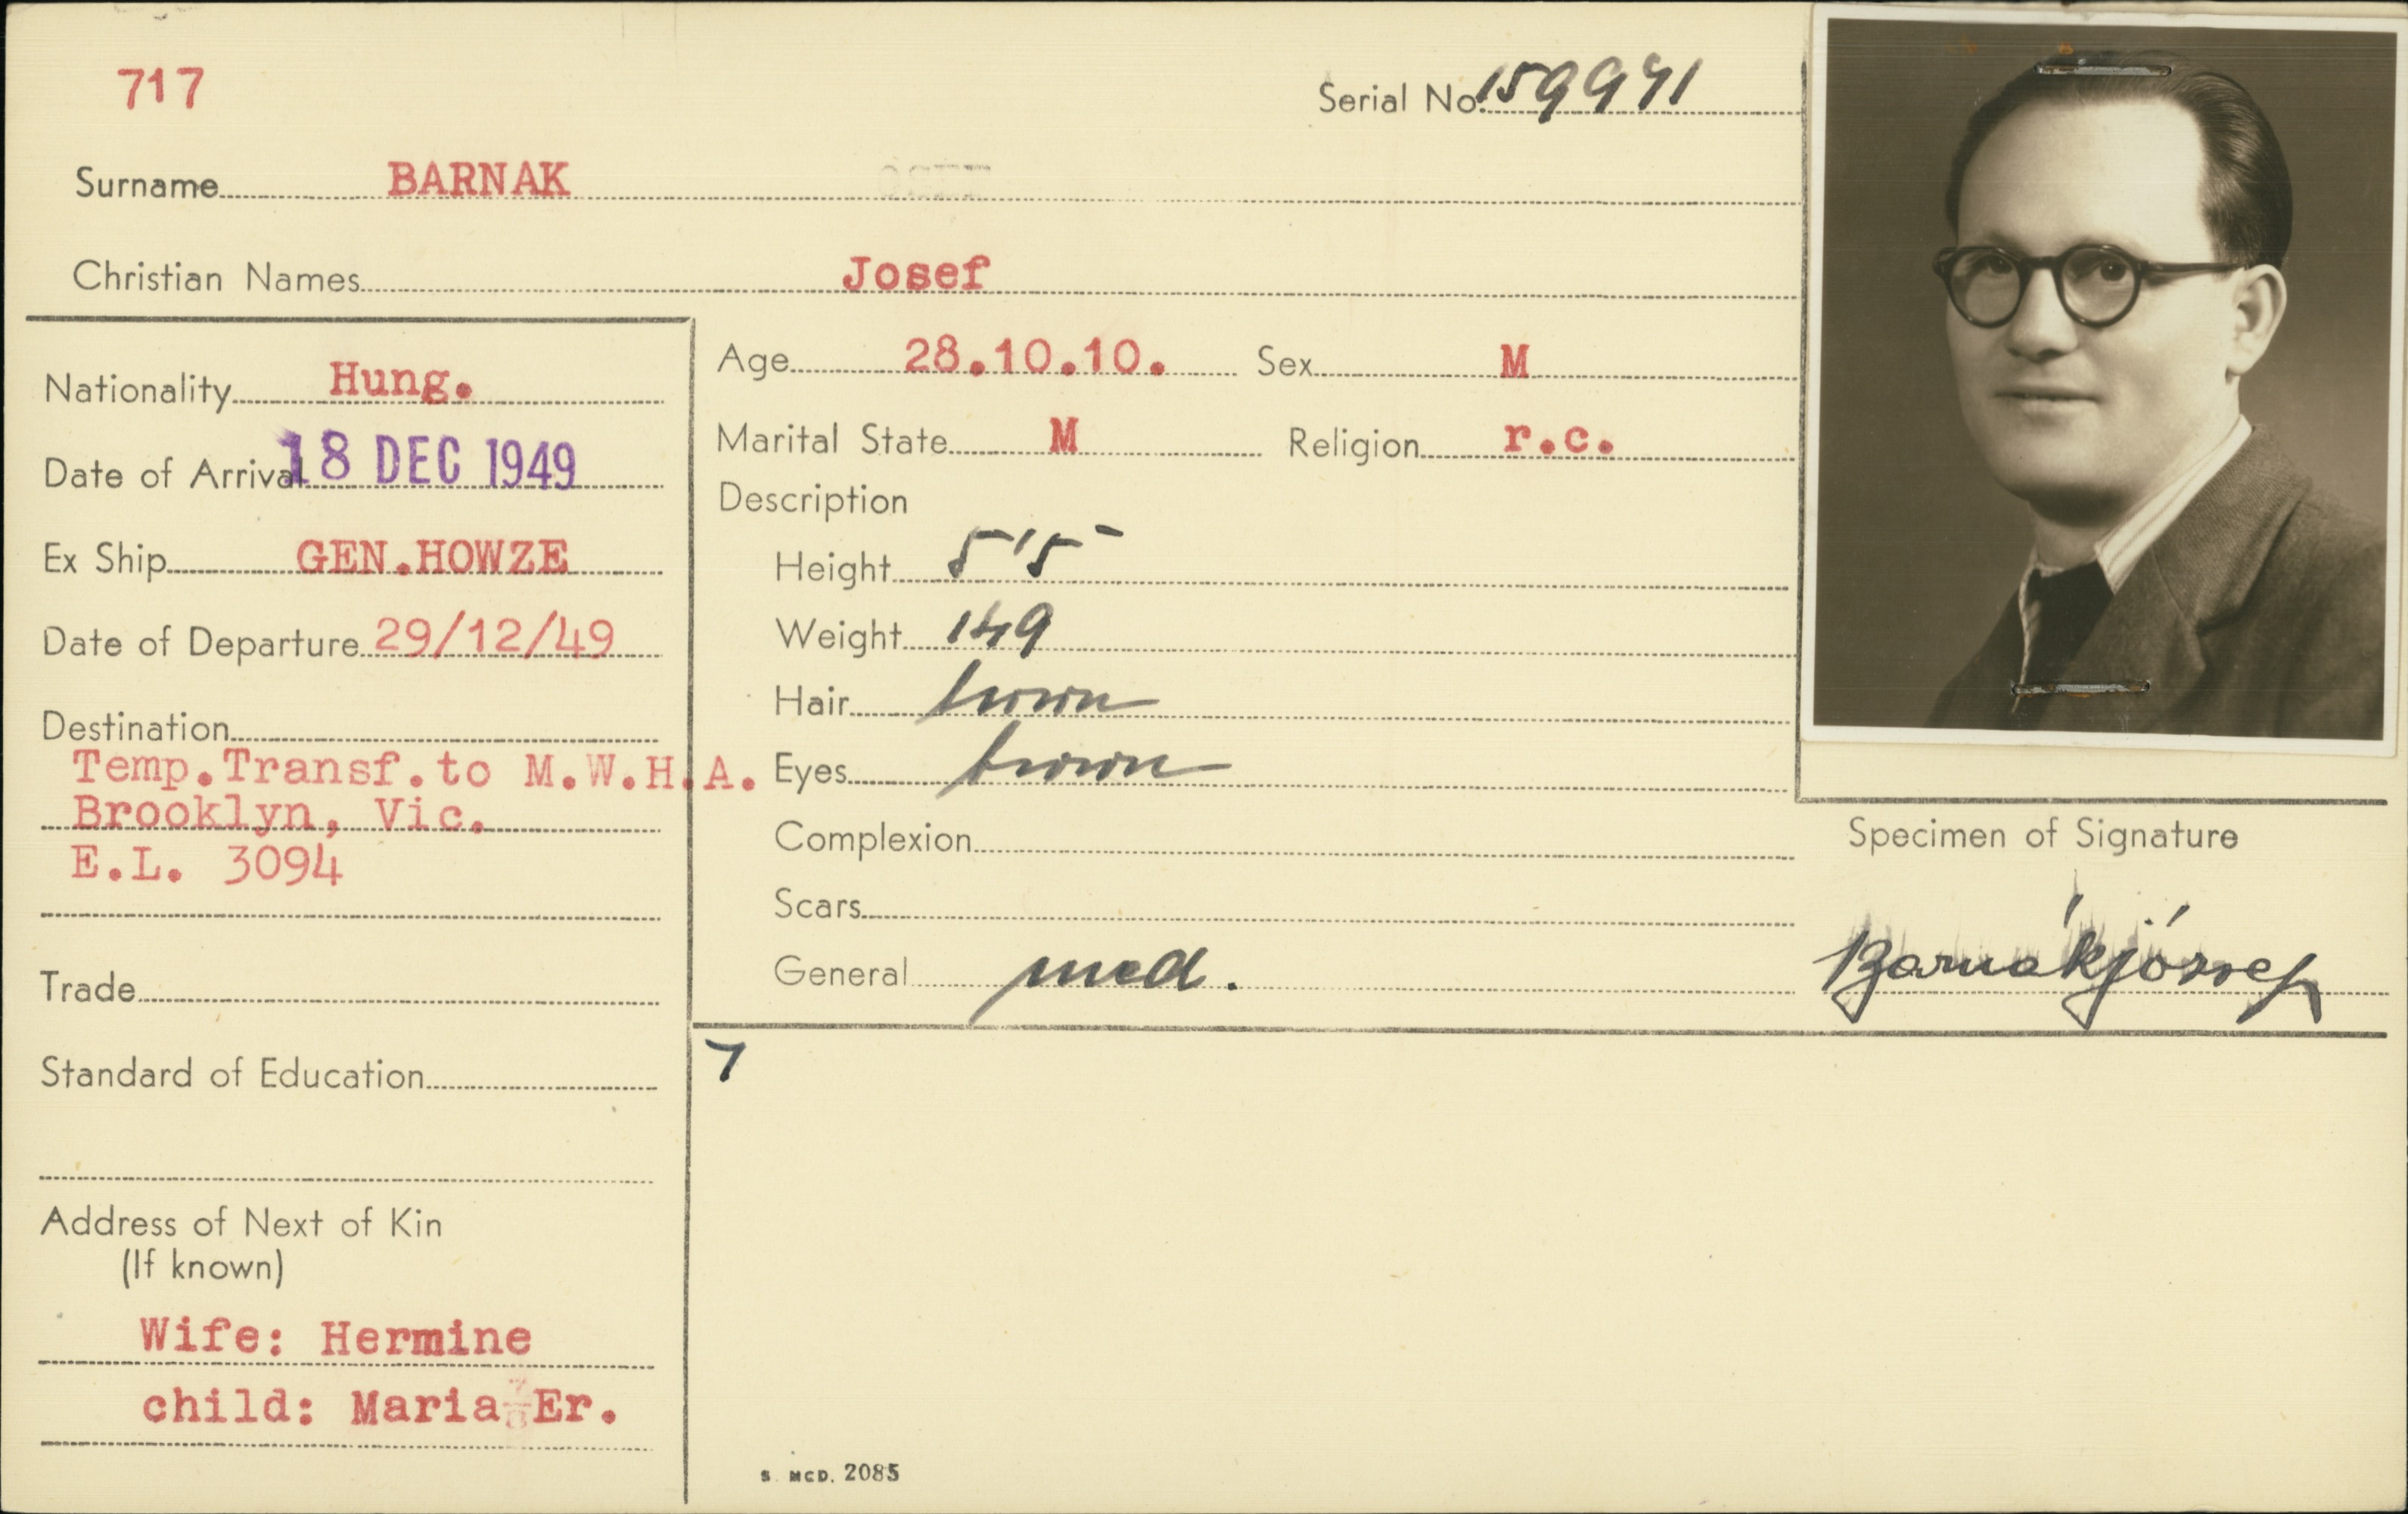 717
Serial No. 159971
Surname BARNAK
Christian Names Josef
Nationality Hung.
Date of Arrival 18 DEC 1949
Ex Ship GEN.HOWZE
Date of Departure 29/12/49
Destination
Temp.Transf.to M.W.H.A.
Brooklyn, Vic.
E.L. 3094
Trade
Standard of Education
Address of Next of Kin
(If known)
Wife: Hermine
child: Maria Er.
Age 28.10.10. Sex M
Marital State M Religion r.c.
Description
Height 5'5"
Weight 149
Hair brown
Eyes brown
Complexion
Scars
General med.
7
S. MCD. 2085
Specimen of Signature
Barnák József